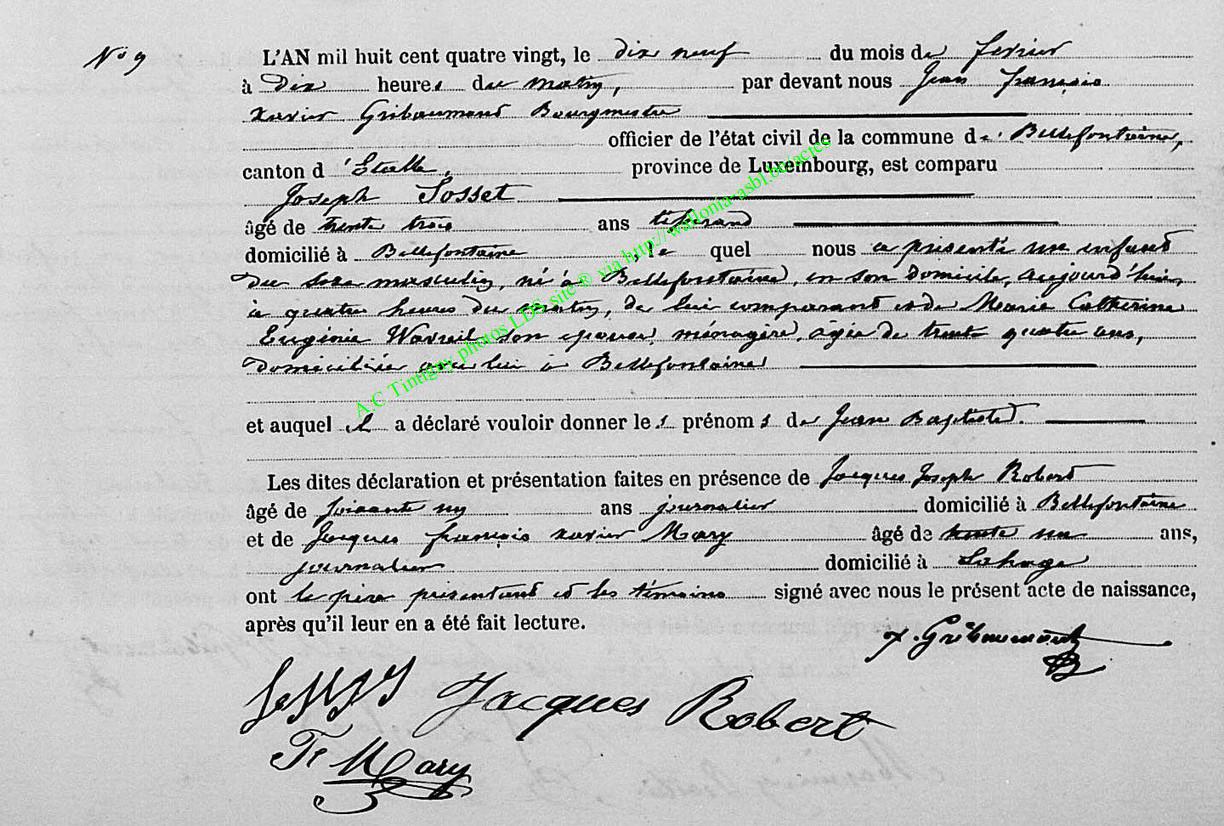 N° 9
L'AN mil huit cent quatre vingt, le dix neuf du mois de fevrier
à Dix heures du matin, par devant nous Jean françois
xavier Gribaumont Bourgmestre
officier de l'état civil de la commune de Bellefontaine,
canton d'Etalle, province de Luxembourg, est comparu
Joseph Sosset
âgé de trente trois ans tisserand
domicilié à Bellefontaine, le quel nous a présenté un enfant
du sexe masculin, né à Bellefontaine, en son domicile, aujourd'hui,
à quatre heures du matin, de lui comparant et de Marie Catherine
Eugénie son épouse, ménagère, âgée de trente quatre ans,
domiciliée avec lui à Bellefontaine
et auquel il a déclaré vouloir donner les prénoms de Jean Baptiste.
Les dites déclaration et présentation faites en présence de Jacques Joseph Robert
âgé de soixante ans journalier domicilié à Bellefontaine
et de Jacques françois xavier Mary âgé de trente un ans,
journalier domicilié à Lahage
ont le père présentant et les témoins signé avec nous le présent acte de naissance,
après qu'il leur en a été fait lecture.
x. Gribaumont
Jacques Robert
Mary
A.C Tintigny photos LDS site ® via http://wallonia-asbl.be/actes